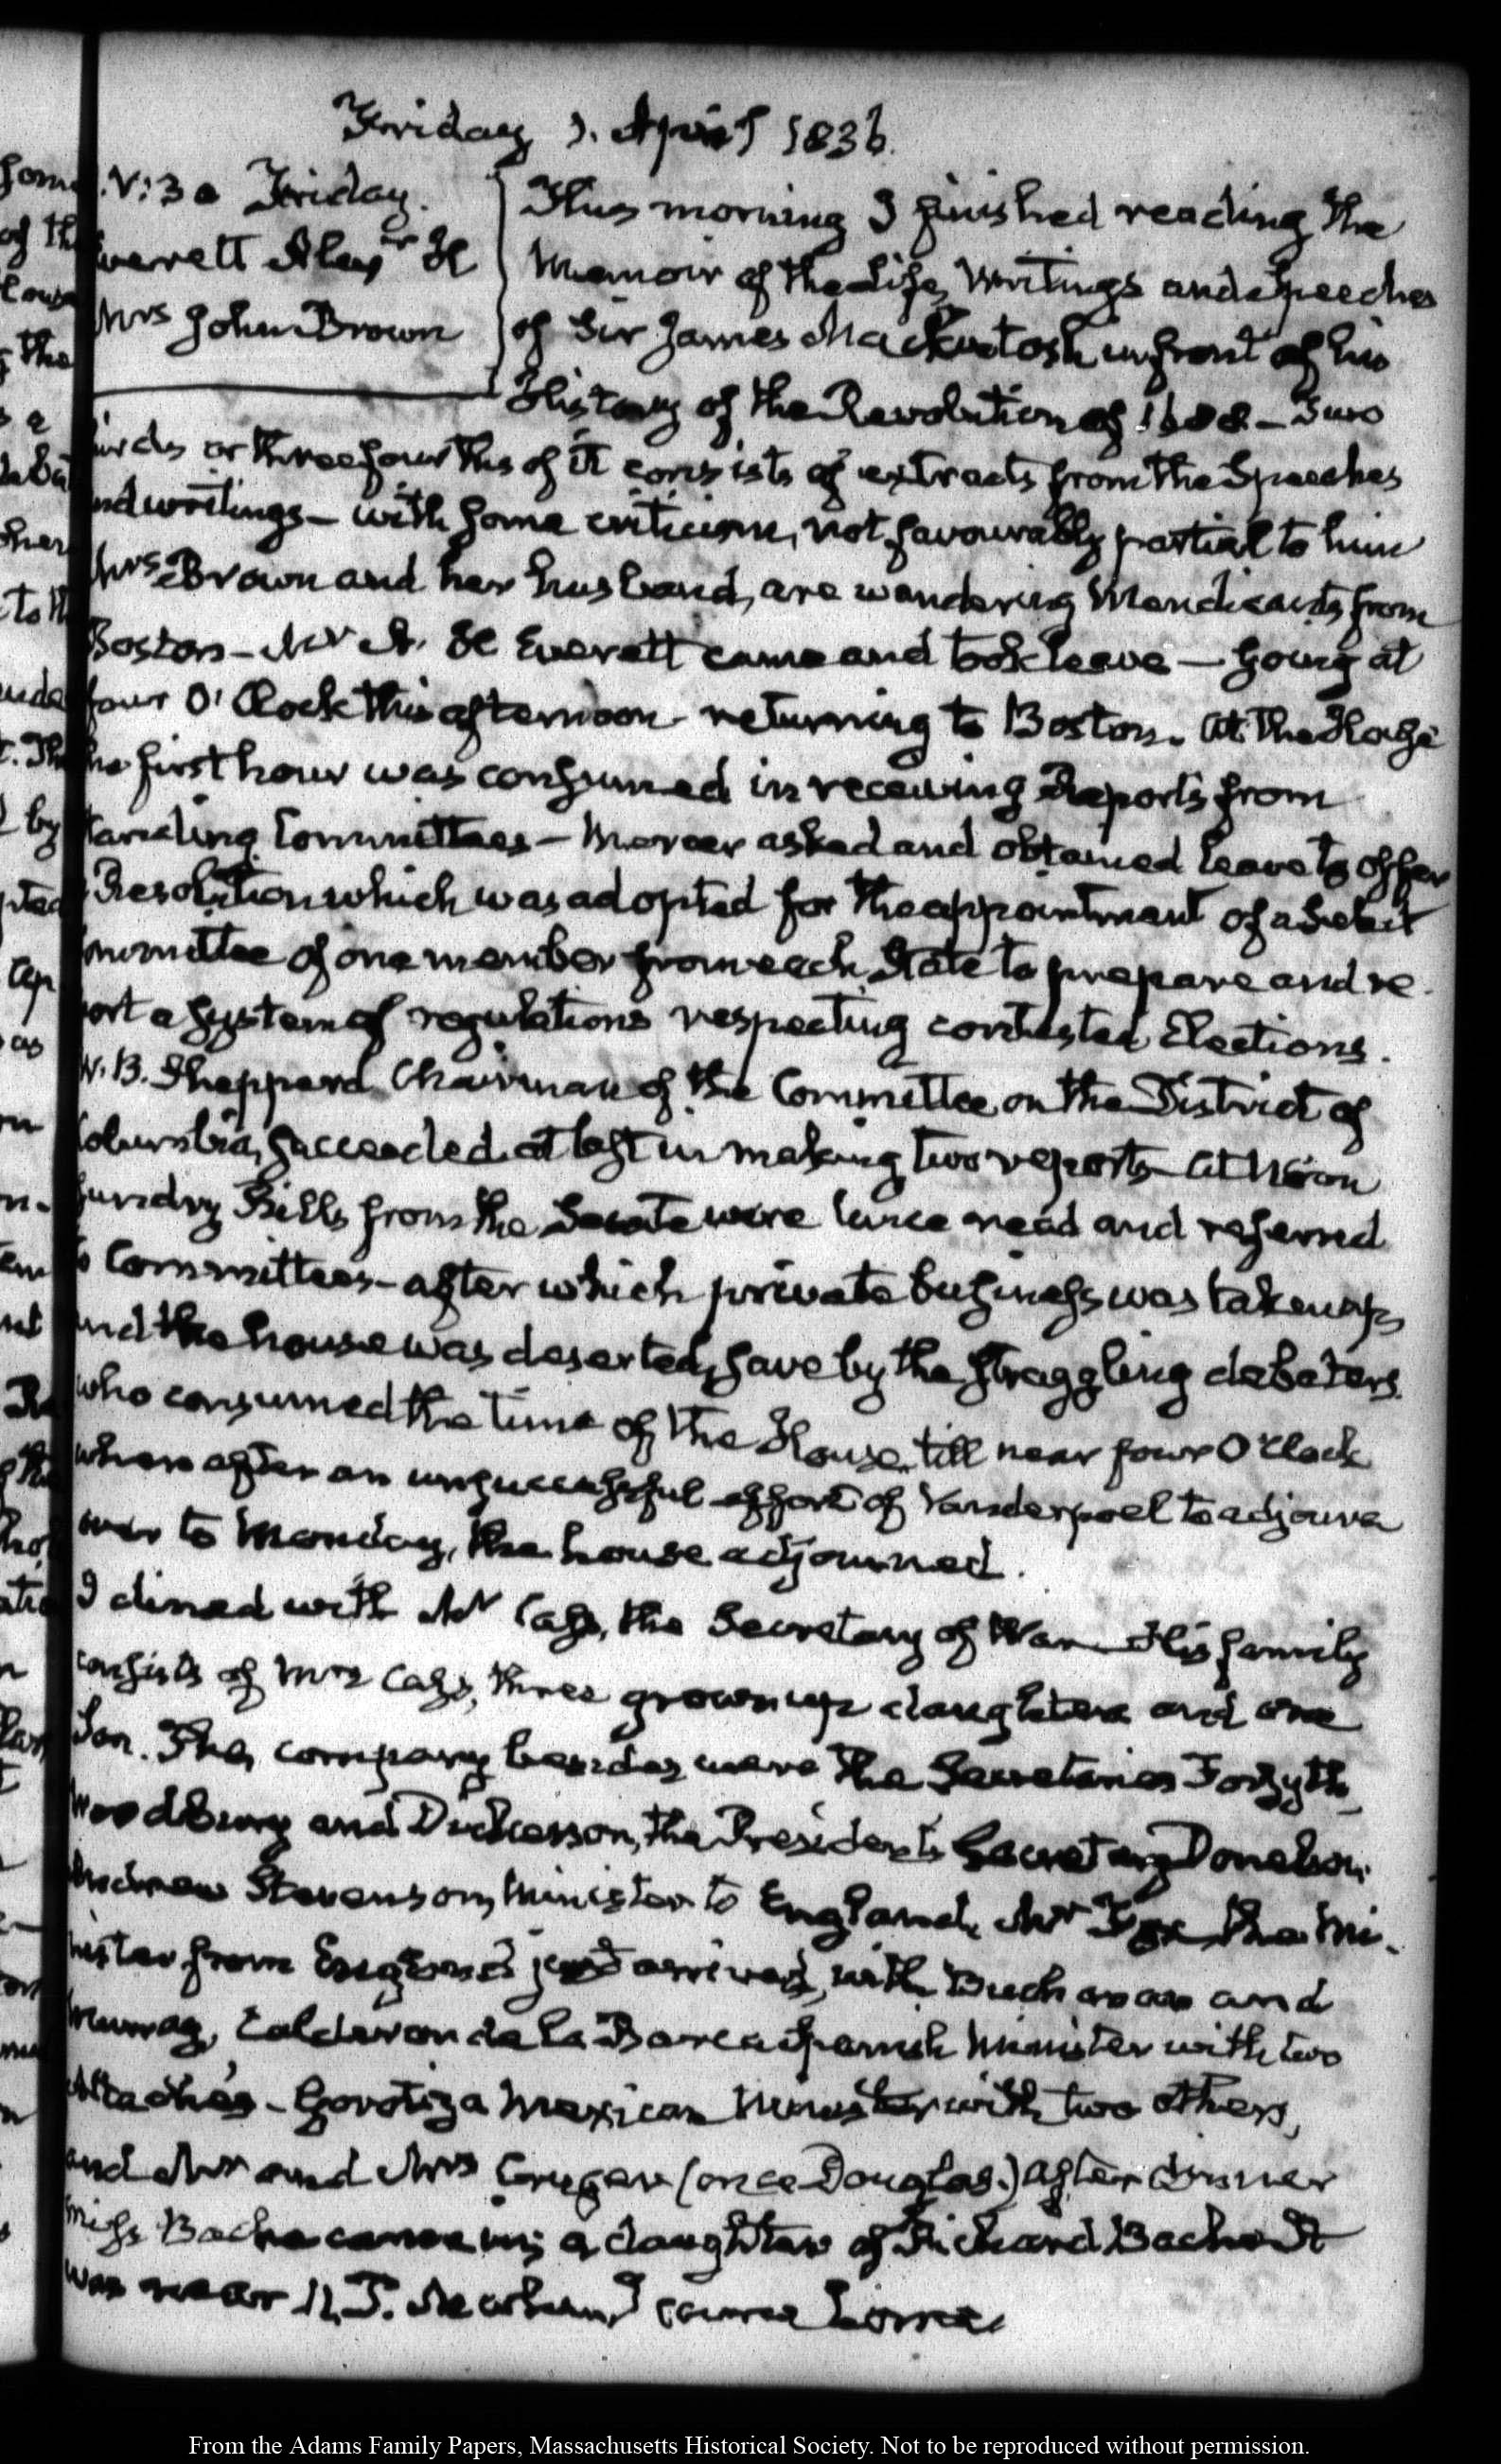 Friday 1. April 1836.
V:30 Friday.
Everett Alexr H
Mrs John Brown
This morning I finished reading the
Memoir of the Life, Writings and Speeches
of Sir James Mackintosh in front of his
History of the Revolution of 1688 - Two
thirds or three fourths of it consists of extracts from the Speeches
and writings - with some criticism, not favourably partial to him
Mrs Brown and her husband, are wandering Mendicants from
Boston - Mr A. H Everett came and took leave - going at
four O'Clock this afternoon returning to Boston. At the House
the first hour was consumed in receiving Reports from
standing Committees - Mercer asked and obtained leave to offer
a Resolution which was adopted for the appointment of a Select
Committee of one member from each State to prepare and re-
port a system of regulations respecting contested Elections.
W. B. Sheppard Chairman of the Committee on the District of
Columbia, succeeded at last in making two reports - At Noon
sundry Bills from the Senate were twice read and referred
to Committees - after which private business was taken up,
and the house was deserted, save by the straggling debaters
who consumed the time of the House till near four O'Clock
when after an unsuccessful effort of Vanderpoel to adjourn
over to Monday, the house adjourned.
I dined with Mr Cass, the Secretary of War - His family
consists of Mrs Cass, three grown up daughters and one
Son. The company besides were the Secretaries Forsyth,
Woodbury and Dickerson, the President's Secretary Donelson,
Andrew Stevenson, Minister to England, Mr Fox, the Mi-
nister from England just arrived, with Buchanan and
Murray, Calderon de la Barca Spanish Minister with two
Attachés - Gorostiza Mexican Minister with two others,
and Mr and Mrs Cruger (once Douglas.) After dinner
Miss Bache came in; a daughter of Richard Bache It
was near 11, when I came home
From the Adams Family Papers, Massachusetts Historical Society. Not to be reproduced without permission.